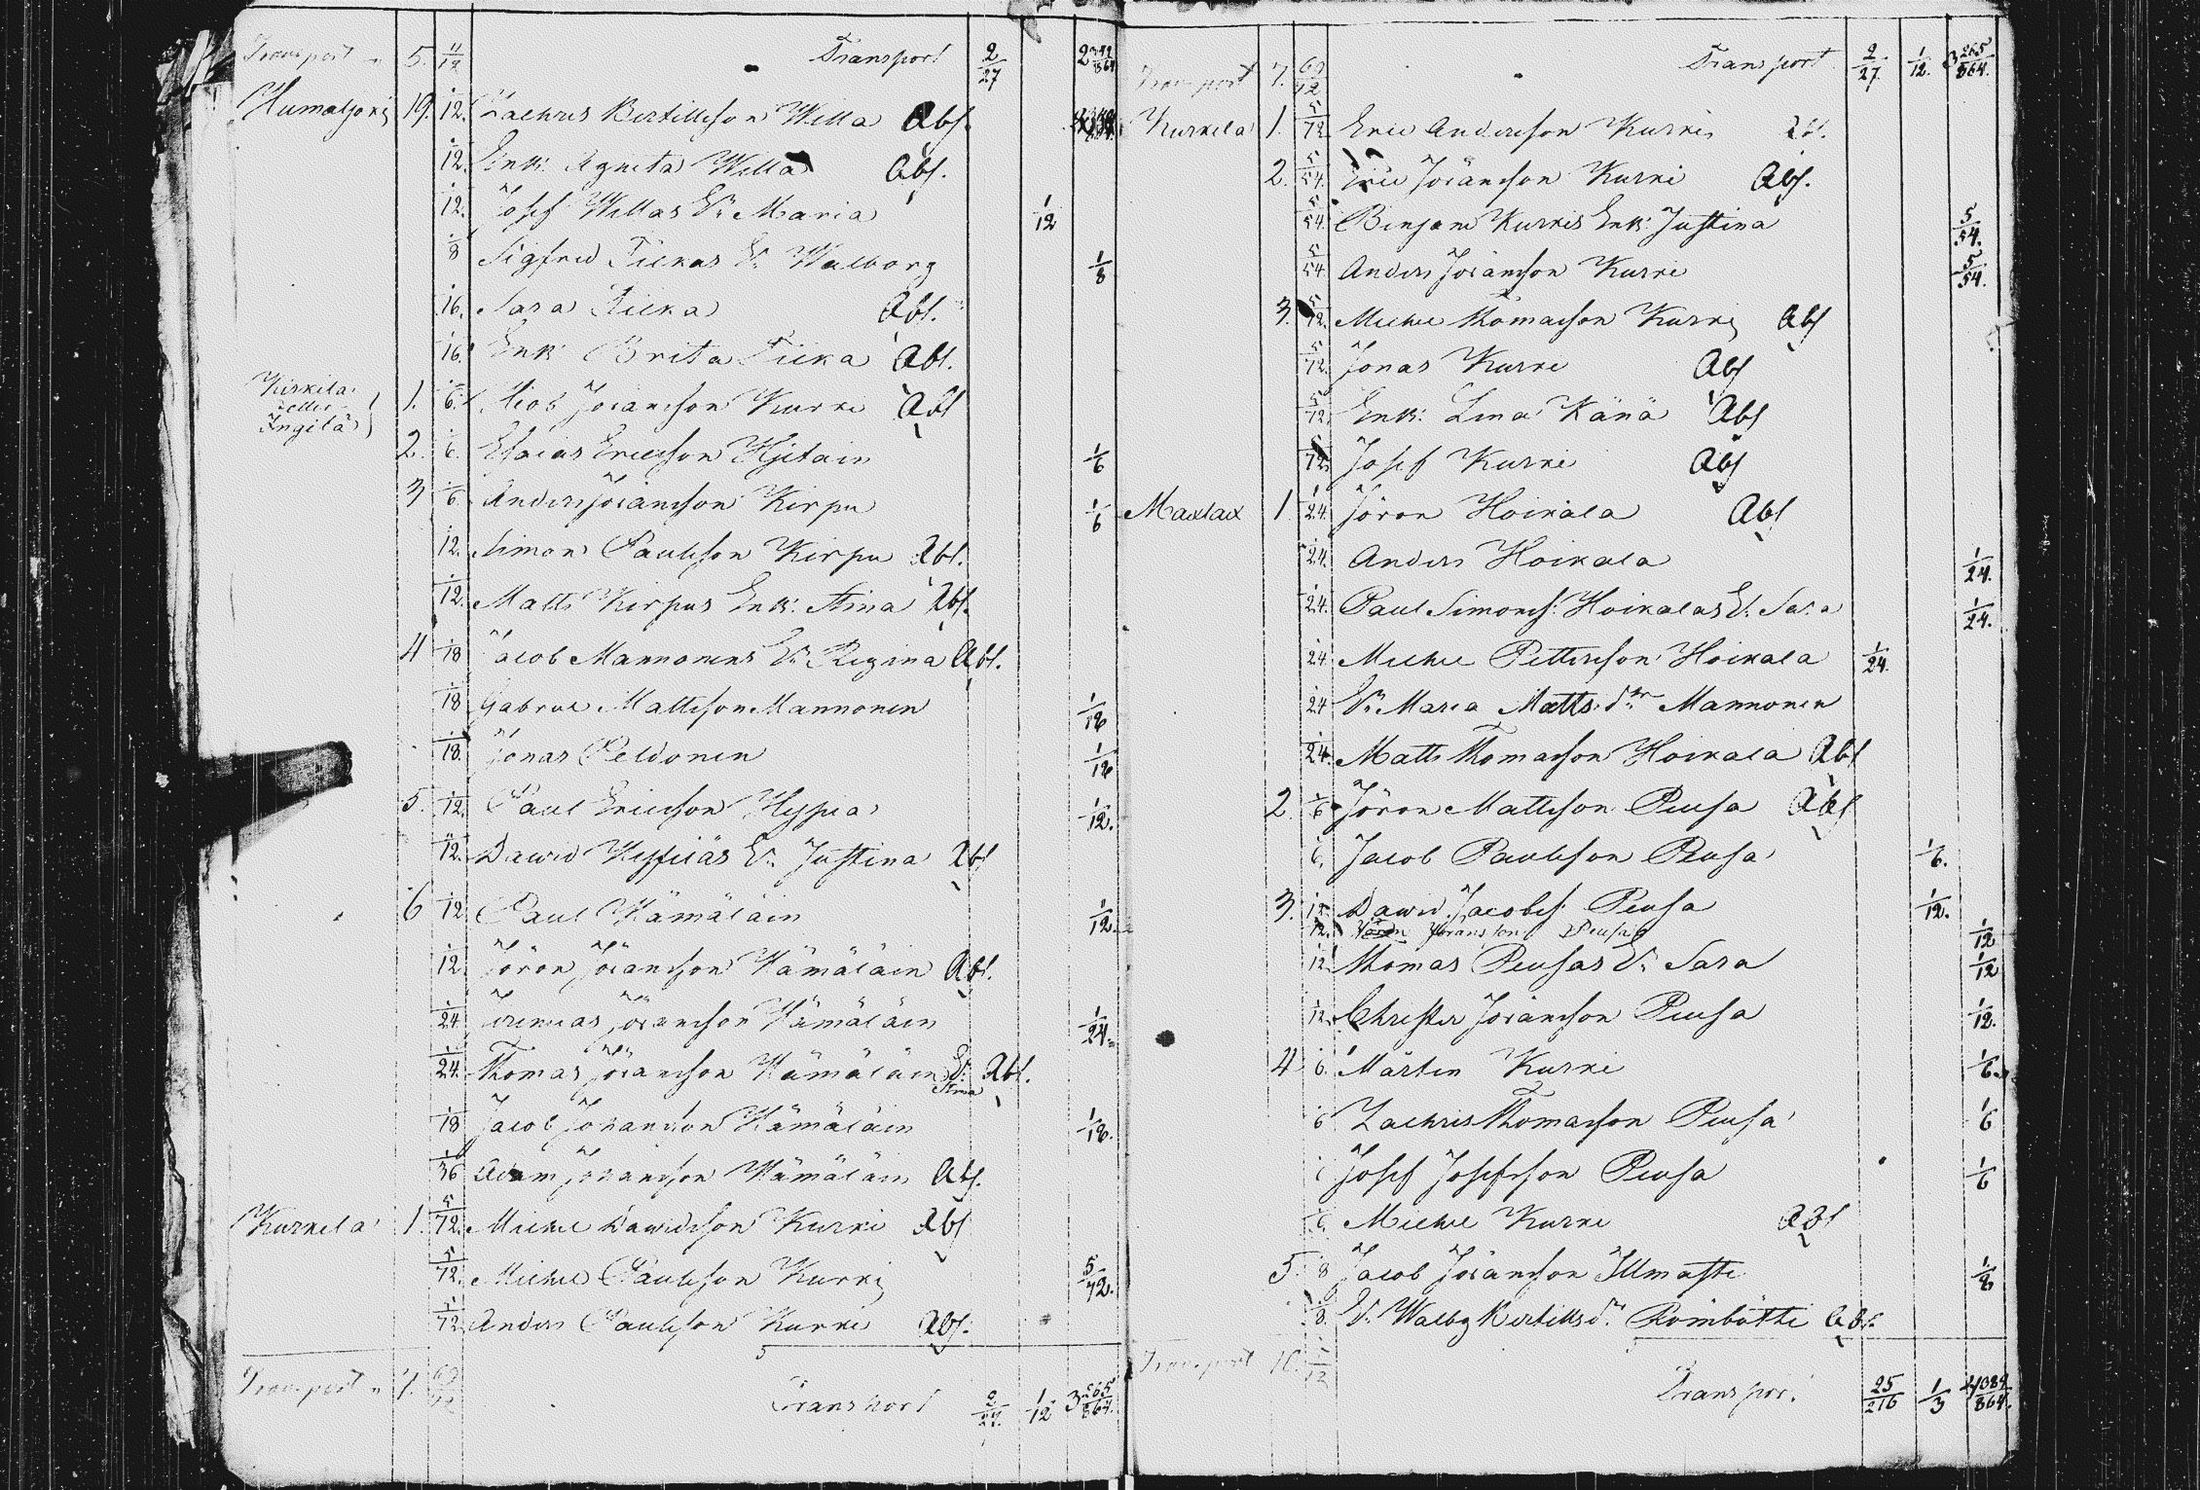 Transport " 5. 11/12 Transport 2/27 2
Humaljoki 19. 1/12. Zachris Bertillsson Willa Abs.
1/12. Enk: Agneta Willa Abs.
1/12. Josef Willas E: Maria 1/12
1/8 Sigfred Tickas E: Walborg 1/8
1/16. Sara Ticka Abs.
1/16. Enk: Brita Ticka Abs.
Kirkila eller Ingilä 1. 1/6. Jöran Kurki Abs
2. 1/6. Esaias Ericsson Hjitain 1/6
3 1/6. Anders Jöransson Kirpu 1/6
1/12. Simon Paulsson Kirpu Abs.
1/12. Matts Kirpus Enk: Stina Abs.
4 1/18 Jacob Mannonens E: Regina Abs.
1/18 Gabriel Mattsson Mannonen 1/18
1/18. Jonas Peldonen 1/18
5. 1/12. Paul Ericsson Hyppiä 1/12.
1/12. David Hyppiäs E: Justina Abs
6 1/12 Paul Hämäläin 1/12.
1/12. Jöran Jöransson Hämäläin Abs.
1/24. Jeremias Jöransson Hämäläin 1/24.
1/24. Thomas Jöransson Hämäläins E: Stina Abs.
1/18 Jacob Johansson Hämäläin 1/18.
1/36 Adam Johansson Hämäläin Abs.
Kurkela 1. 5/72. Michel Davidsson Kurki Abs
5/72. Michel Paulsson Kurki 5/72.
1/72 Anders Paulsson Kurki Abs.
Transport " 7. Transport 2/27. 1/12 3 265/864.
Transport 7. Transport 2/27. 1/12. 3 265/864.
Kurkela 1. 5/72. Eric Andersson Kurki Abs.
2. 5/54. Eric Jöransson Kurki Abs.
5/54. Benjam Kurkis Enk: Justina 5/54.
5/54 Anders Jöransson Kurki 5/54.
3. 5/72. Michel Thomasson Kurki Abs
5/72. Jonas Kurki Abs
5/72. Enk: Lena Känä Abs
5/72. Josef Kurki Abs
Maxlax 1. 1/24. Jöran Hoikala Abs
1/24. Anders Hoikala 1/24.
1/24. Paul Simonss: Hoikalas E: Sara 1/24.
1/24. Michel Pettersson Hoikala 1/24.
1/24 E: Maria Mattsdr Mannonen
1/24. Matts Thomasson Hoikala Abs
2. 1/6 Jöran Mattsson Peusa Abs
1/6. Jacob Paulsson Peusa 1/6.
3. 1/12. David Jacobss: Peusa 1/12.
1/12. Jöransson Peusa 1/12
1/12. Thomas Peusas E: Sara 1/12
1/12. Christer Jöransson Peusa 1/12.
4 1/6. Mårten Kurki 1/6.
1/6 Zachris Thomasson Peusa 1/6
1/6 Josef Josefsson Peusa 1/6
1/6. Michel Kurki Abs
5. 1/8 Jacob Jöransson Illmasti 1/8
1/8. E: Walbg Bertillsdr Römbötti Abs.
Transport 10. 1/12 Transport 25/216 1/3